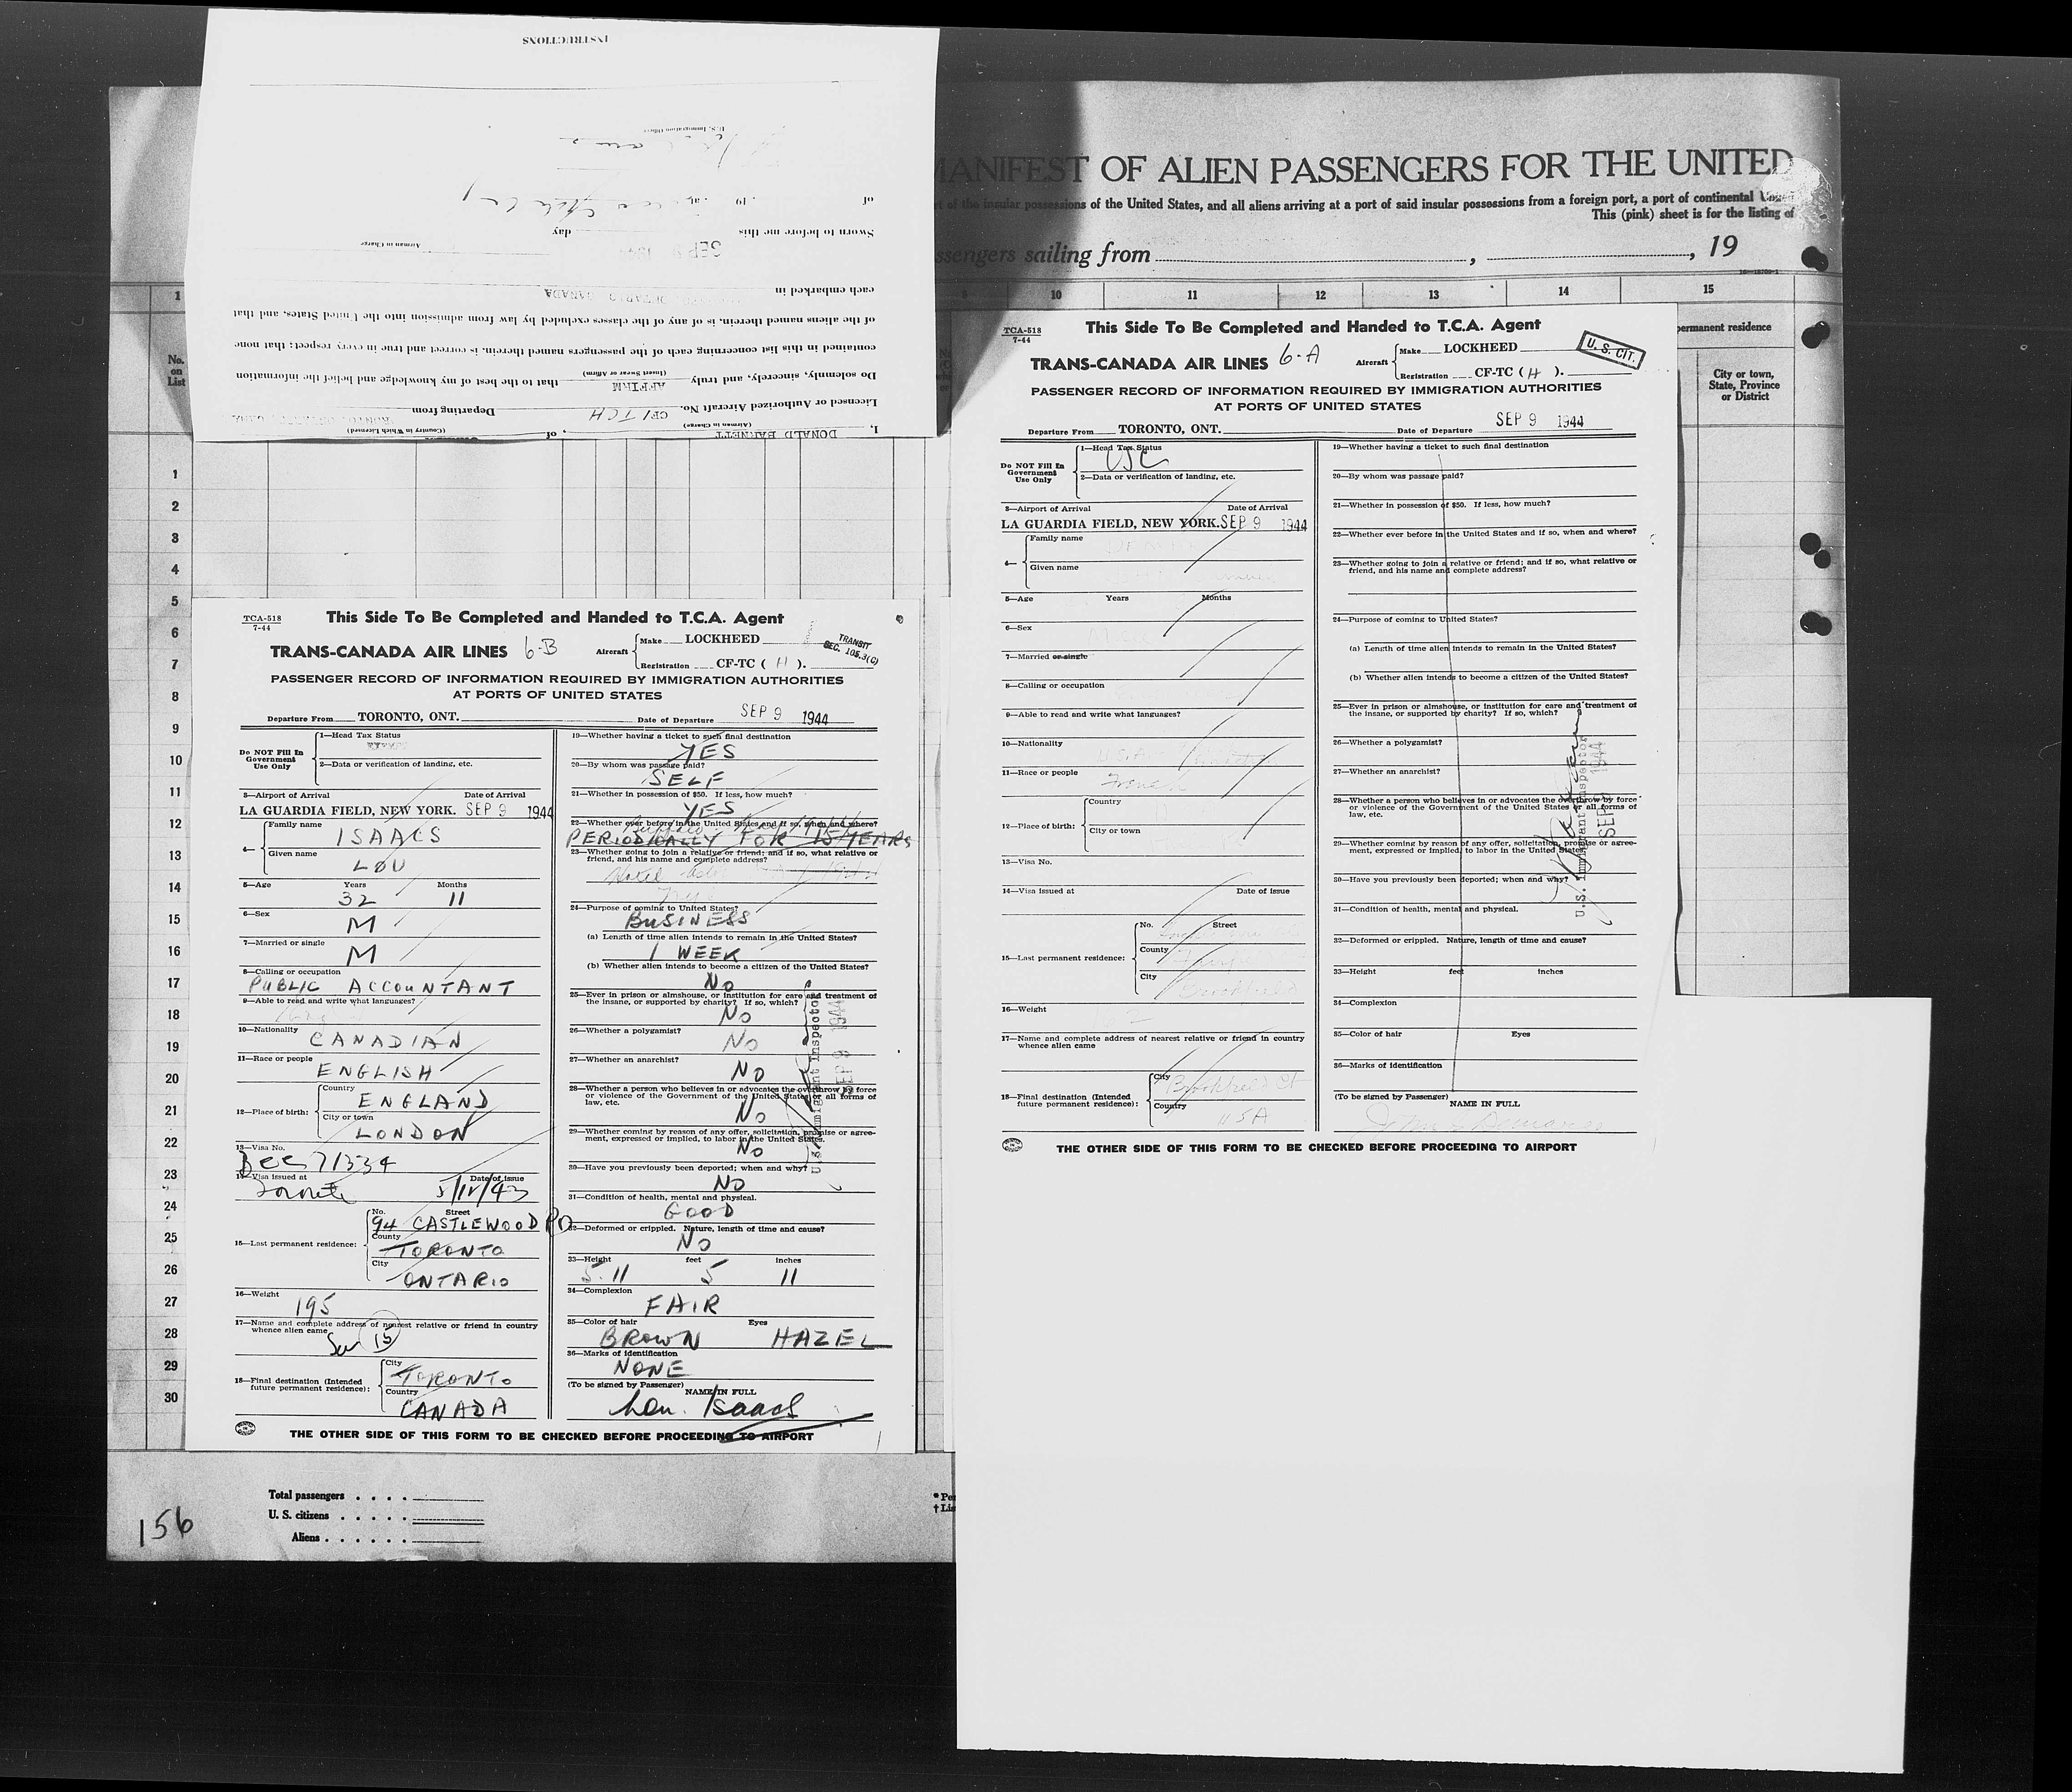 INSTRUCTIONS
U.S. Immigration Officer
of 19 , at
Sworn to before me this SEP 9 1944 day
Airman in Charge
each embarked in ONTARIO CANADA
of the aliens named therein, is of any of the classes excluded by law from admission into the United States, and that
contained in this list concerning each of the passengers named therein, is correct and true in every respect; that none
Do solemnly, sincerely, and truly AFFIRM that to the best of my knowledge and belief the information
(Insert Swear or Affirm)
Licensed or Authorized Aircraft No. CF/TCH Departing from
(Airman in Charge) (Country in Which Licensed)
I, DONALD BARNETT , of
MANIFEST OF ALIEN PASSENGERS FOR THE UNITED
of the insular possessions of the United States, and all aliens arriving at a port of said insular possessions from a foreign port, a port of continental
This (pink) sheet is for the listing of
sailing from , , 19
1 10 11 12 13 14 15
No. on List
permanent residence
City or town, State, Province or District
1
2
3
4
5
6
7
8
9
10
11
12
13
14
15
16
17
18
19
20
21
22
23
24
25
26
27
28
29
30
TCA-518
7-44
This Side To Be Completed and Handed to T.C.A. Agent
TRANS-CANADA AIR LINES 6-B
Aircraft Make LOCKHEED
Registration CF-TC ( H ).
TRANSIT
SEC. 105.3(C)
PASSENGER RECORD OF INFORMATION REQUIRED BY IMMIGRATION AUTHORITIES
AT PORTS OF UNITED STATES
Departure From TORONTO, ONT. Date of Departure SEP 9 1944
Do NOT Fill In Government Use Only
1—Head Tax Status
2—Data or verification of landing, etc.
3—Airport of Arrival Date of Arrival
LA GUARDIA FIELD, NEW YORK. SEP 9 1944
4— Family name
ISAACS
Given name
LOU
5—Age Years Months
32 11
6—Sex
M
7—Married or single
M
8—Calling or occupation
PUBLIC ACCOUNTANT
9—Able to read and write what languages?
10—Nationality
CANADIAN
11—Race or people
ENGLISH
12—Place of birth: Country
ENGLAND
City or town
LONDON
13—Visa No.
BCC 71334
14—Visa issued at Date of issue
Toronto 5/11/43
15—Last permanent residence: No. Street
94 CASTLEWOOD RD
County
TORONTO
City
ONTARIO
16—Weight
195
17—Name and complete address of nearest relative or friend in country
whence alien came
15
18—Final destination (Intended future permanent residence): City
TORONTO
Country
CANADA
19—Whether having a ticket to such final destination
YES
20—By whom was passage paid?
SELF
21—Whether in possession of $50. If less, how much?
YES
22—Whether ever before in the United States and if so, when and where?
PERIODICALLY FOR 15 YEARS
23—Whether going to join a relative or friend; and if so, what relative or
friend, and his name and complete address?
Hotel
24—Purpose of coming to United States?
BUSINESS
(a) Length of time alien intends to remain in the United States?
1 WEEK
(b) Whether alien intends to become a citizen of the United States?
NO
25—Ever in prison or almshouse, or institution for care and treatment of
the insane, or supported by charity? If so, which?
NO
26—Whether a polygamist?
NO
27—Whether an anarchist?
NO
28—Whether a person who believes in or advocates the overthrow by force
or violence of the Government of the United States or all forms of
law, etc.
NO
29—Whether coming by reason of any offer, solicitation, promise or agree-
ment, expressed or implied, to labor in the United States.
NO
30—Have you previously been deported; when and why?
NO
31—Condition of health, mental and physical.
GOOD
32—Deformed or crippled. Nature, length of time and cause?
NO
33—Height feet inches
5.11 5 11
34—Complexion
FAIR
35—Color of hair Eyes
BROWN HAZEL
36—Marks of identification
NONE
(To be signed by Passenger)
NAME IN FULL
Lou. Isaacs
U.S. Immigrant Inspector
SEP 9 1944
THE OTHER SIDE OF THIS FORM TO BE CHECKED BEFORE PROCEEDING TO AIRPORT
Total passengers
U. S. citizens
Aliens
156
TCA-518
7-44
This Side To Be Completed and Handed to T.C.A. Agent
TRANS-CANADA AIR LINES 6-A
Aircraft Make LOCKHEED
Registration CF-TC ( H ).
U. S. CIT.
PASSENGER RECORD OF INFORMATION REQUIRED BY IMMIGRATION AUTHORITIES
AT PORTS OF UNITED STATES
Departure From TORONTO, ONT. Date of Departure SEP 9 1944
Do NOT Fill In Government Use Only
1—Head Tax Status
USC
2—Data or verification of landing, etc.
3—Airport of Arrival Date of Arrival
LA GUARDIA FIELD, NEW YORK. SEP 9 1944
4— Family name
Given name
5—Age Years Months
6—Sex
7—Married or single
8—Calling or occupation
9—Able to read and write what languages?
10—Nationality
U.S.A.
11—Race or people
French
12—Place of birth: Country
City or town
13—Visa No.
14—Visa issued at Date of issue
15—Last permanent residence: No. Street
County
City
Brookfield
16—Weight
17—Name and complete address of nearest relative or friend in country
whence alien came
18—Final destination (Intended future permanent residence): City
Brookfield Ct
Country
USA
19—Whether having a ticket to such final destination
20—By whom was passage paid?
21—Whether in possession of $50. If less, how much?
22—Whether ever before in the United States and if so, when and where?
23—Whether going to join a relative or friend; and if so, what relative or
friend, and his name and complete address?
24—Purpose of coming to United States?
(a) Length of time alien intends to remain in the United States?
(b) Whether alien intends to become a citizen of the United States?
25—Ever in prison or almshouse, or institution for care and treatment of
the insane, or supported by charity? If so, which?
26—Whether a polygamist?
27—Whether an anarchist?
28—Whether a person who believes in or advocates the overthrow by force
or violence of the Government of the United States or all forms of
law, etc.
29—Whether coming by reason of any offer, solicitation, promise or agree-
ment, expressed or implied, to labor in the United States.
30—Have you previously been deported; when and why?
31—Condition of health, mental and physical.
32—Deformed or crippled. Nature, length of time and cause?
33—Height feet inches
34—Complexion
35—Color of hair Eyes
36—Marks of identification
(To be signed by Passenger)
NAME IN FULL
U.S. Immigrant Inspector
SEP 9 1944
THE OTHER SIDE OF THIS FORM TO BE CHECKED BEFORE PROCEEDING TO AIRPORT